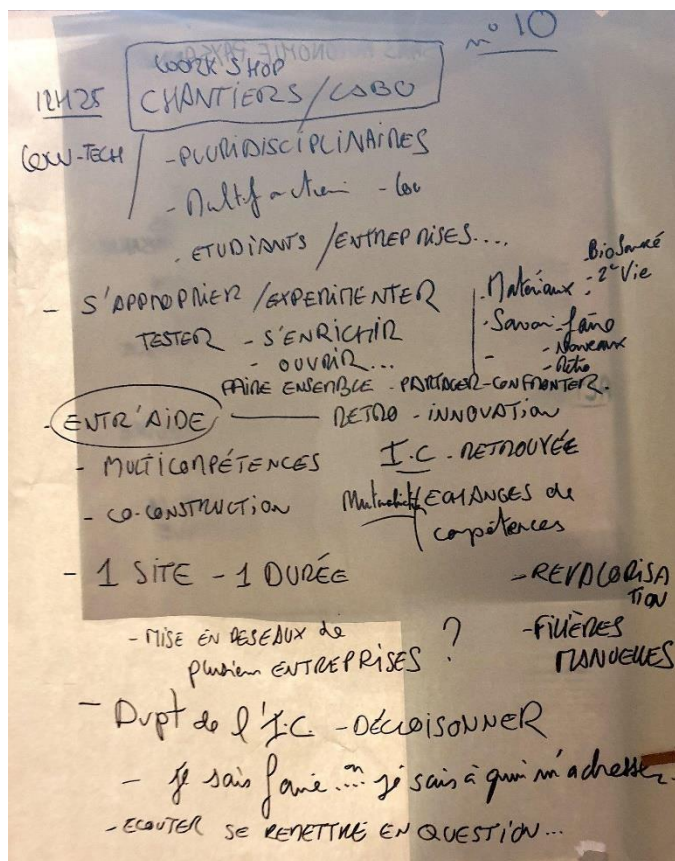 n° 10
WORK SHOP
12H25 CHANTIERS / LABO
LOW-TECH / - PLURIDISCIPLINAIRES
- Multifaction -
- ETUDIANTS / ENTREPRISES....
- S'APPROPRIER / EXPERIMENTER
TESTER - S'ENRICHIR
- OUVRIR...
BioSourcé
- Matériaux : - 2e Vie
- Savoir-faire
- Nouveaux
- - Rétro
FAIRE ENSEMBLE - PARTAGER - CONFRONTER.
- ENTR'AIDE RETRO - INNOVATION
- MULTICOMPÉTENCES I.C - RETROUVÉE
- CO-CONSTRUCTION
ECHANGES de
compétences
- 1 SITE - 1 DURÉE
- REVALORISA
TION
- MISE EN RESEAUX de
plusieurs ENTREPRISES ?
- FILIÈRES
MANUELLES
- Dvpt de l'I.C. - DÉCLOISONNER
- Je sais faire ... on je sais à qui m'adresser.
- ECOUTER SE REMETTRE EN QUESTION...